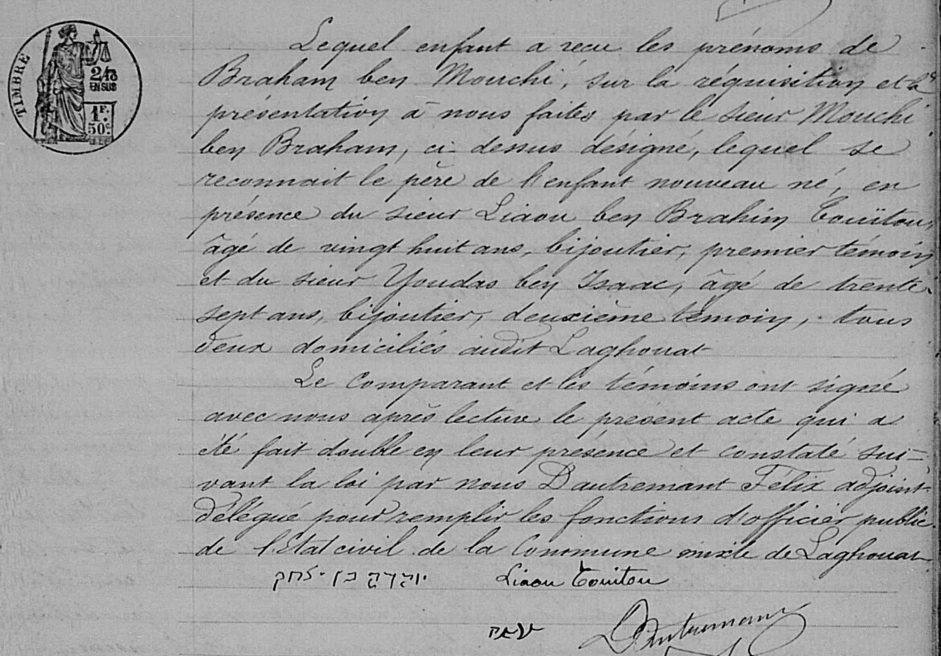 TIMBRE
2/10
EN SUS
1F.
50c
Lequel enfant a reçu les prénoms de
Braham ben Mouchi, sur la réquisition et la
présentation à nous faites par le sieur Mouchi
ben Braham, ci-dessus désigné, lequel se
reconnait le père de l'enfant nouveau né, en
présence du sieur Liaou ben Brahim Touitou,
âgé de vingt huit ans, bijoutier, premier témoin
et du sieur Youdas ben Isaac, âgé de trente
sept ans, bijoutier, deuxième témoin, tous
deux domiciliés audit Laghouat
Le comparant et les témoins ont signé
avec nous après lecture le présent acte qui a
été fait double en leur présence et constaté sui=
vant la loi par nous Dautremant Félix adjoint-
délégué pour remplir les fonctions d'officier public
de l'Etat civil de la Commune mixte de Laghouat
יהודה בן יצחק Liaou Touitou
Dautremant